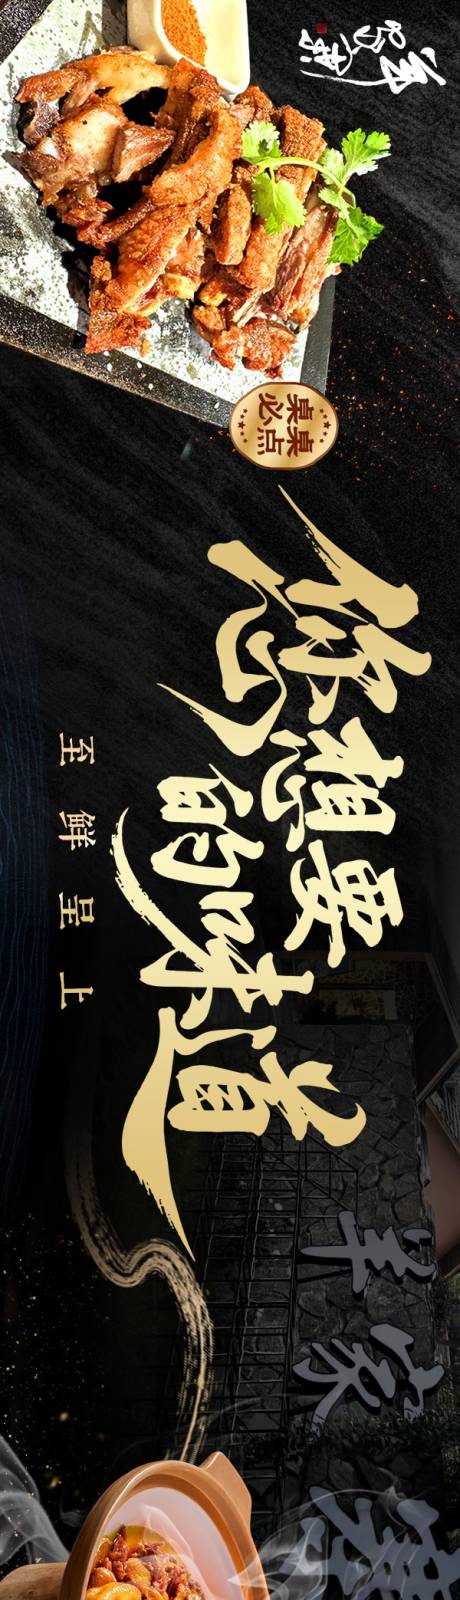 桌桌
必点
您想要
的味道
至鲜呈上
羊家